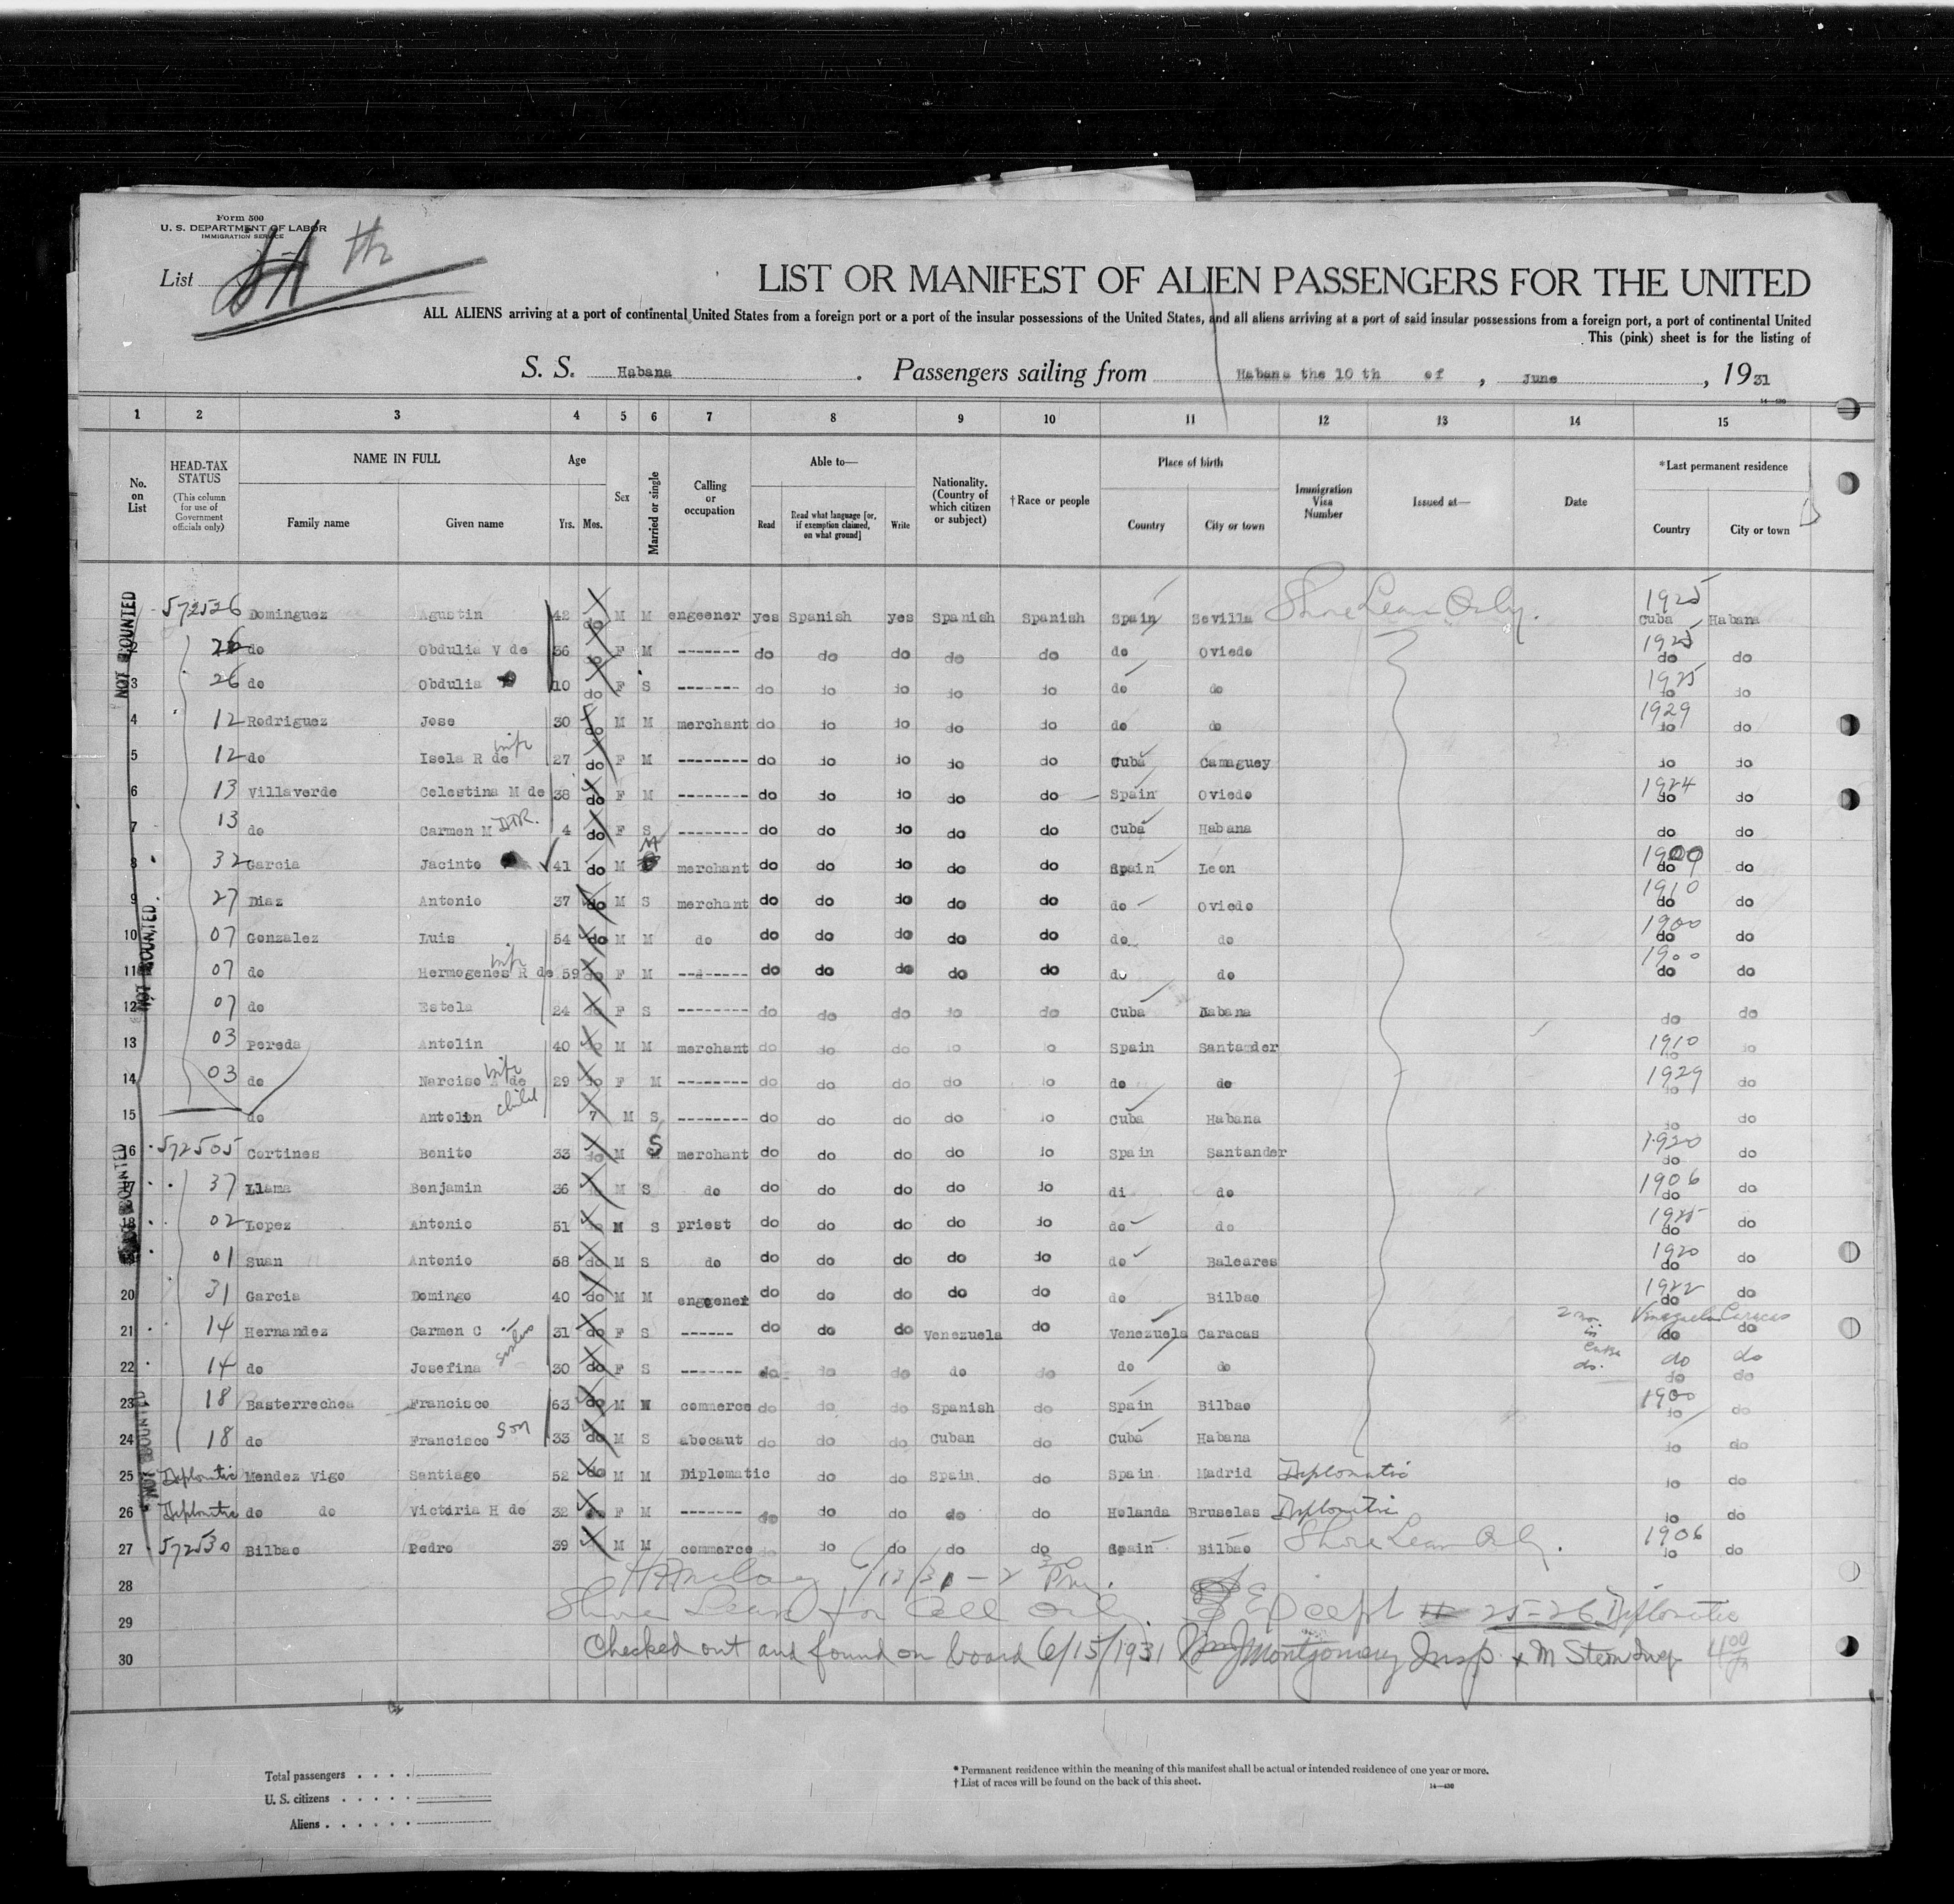 Form 500
U. S. DEPARTMENT OF LABOR
IMMIGRATION SERVICE
List
LIST OR MANIFEST OF ALIEN PASSENGERS FOR THE UNITED
ALL ALIENS arriving at a port of continental United States from a foreign port or a port of the insular possessions of the United States, and all aliens arriving at a port of said insular possessions from a foreign port, a port of continental United
This (pink) sheet is for the listing of
S. S. Habana . Passengers sailing from Habana the 10 th of , June , 1931
1 2 3 4 5 6 7 8 9 10 11 12 13 14 15
No. on List HEAD-TAX STATUS (This column for use of Government officials only) NAME IN FULL Family name Given name Age Yrs. Mos. Sex Married or single Calling or occupation Able to— Read Read what language [or, if exemption claimed, on what ground] Write Nationality. (Country of which citizen or subject) †Race or people Place of birth Country City or town Immigration Visa Number Issued at— Date *Last permanent residence Country City or town
NOT BOUNTED
572526 Dominguez Agustin 42 do M M engeener yes Spanish yes Spanish Spanish Spain Sevilla Shore Leave Only. 1925 Cuba Habana
2 26 do Obdulia V de 36 do F M ------- do do do do do do Oviedo 1925 do do
3 26 do Obdulia 10 do F S ------- do do do do do do do 1925 do do
4 12 Rodriguez Jose 30 do M M merchant do do do do do do do 1929 do do
5 12 do Isela R de wife 27 do F M -------- do do do do do Cuba Camaguey do do
6 13 Villaverde Celestina M de 38 do F M -------- do do do do do Spain Oviedo 1924 do do
7 13 do Carmen M DTR. 4 do F S -------- do do do do do Cuba Habana do do
8 32 Garcia Jacinto 41 do M M merchant do do do do do Spain Leon 1909 do do
9 27 Diaz Antonio 37 do M S merchant do do do do do do Oviedo 1910 do do
NOT BOUNTED.
10 07 Gonzalez Luis 54 do M M do do do do do do do do 1900 do do
11 07 do Hermogenes R de wife 59 do F M -------- do do do do do do do 1900 do do
12 07 do Estela 24 do F S -------- do do do do do Cuba Habana do do
13 03 Pereda Antolin 40 do M M merchant do do do do do Spain Santander 1910 do do
14 03 do Narcisa de wife 29 do F M -------- do do do do do do do 1929 do do
15 do Antolin child 7 M S -------- do do do do do Cuba Habana do do
16 572505 Cortines Benito 33 do M S merchant do do do do do Spain Santander 1920 do do
17 37 Llama Benjamin 36 M S do do do do do do di do 1906 do do
18 02 Lopez Antonio 51 do M S priest do do do do do do do 1925 do do
01 Suan Antonio 58 do M S do do do do do do do Baleares 1920 do do
20 31 Garcia Domingo 40 do M M engeener do do do do do do Bilbao 1922 do do
21 14 Hernandez Carmen C sisters 31 do F S ------ do do do Venezuela do Venezuela Caracas Venezuela Caracas do do
22 14 do Josefina 30 do F S ------- do do do do do do do do. do do do do
23 18 Basterrechea Francisco 63 do M M commerce do do do Spanish do Spain Bilbao 1900 do do
24 18 do Francisco son 33 do M S abocaut do do do Cuban do Cuba Habana do do
NOT BOUNTED
25 Diplomatic Mendez Vigo Santiago 52 do M M Diplomatic do do Spain do Spain Madrid Diplomatic do do
26 Diplomatic do do Victoria H de 32 do F M ------- do do do do do Holanda Bruselas Diplomatic do do
27 572530 Bilbao Pedro 39 M M commerce do do do do do Spain Bilbao Shore Leave Only. 1906 do do
28 6/13/31 - 2 30 Pm.
29 Shore Leave for all only. Except 25-26 Diplomatic
30 Checked out and found on board 6/15/1931 Wm J Montgomery Insp. + M Stern Insp
Total passengers . . . .
U. S. citizens . . . . .
Aliens . . . . . .
* Permanent residence within the meaning of this manifest shall be actual or intended residence of one year or more.
† List of races will be found on the back of this sheet.
14—430